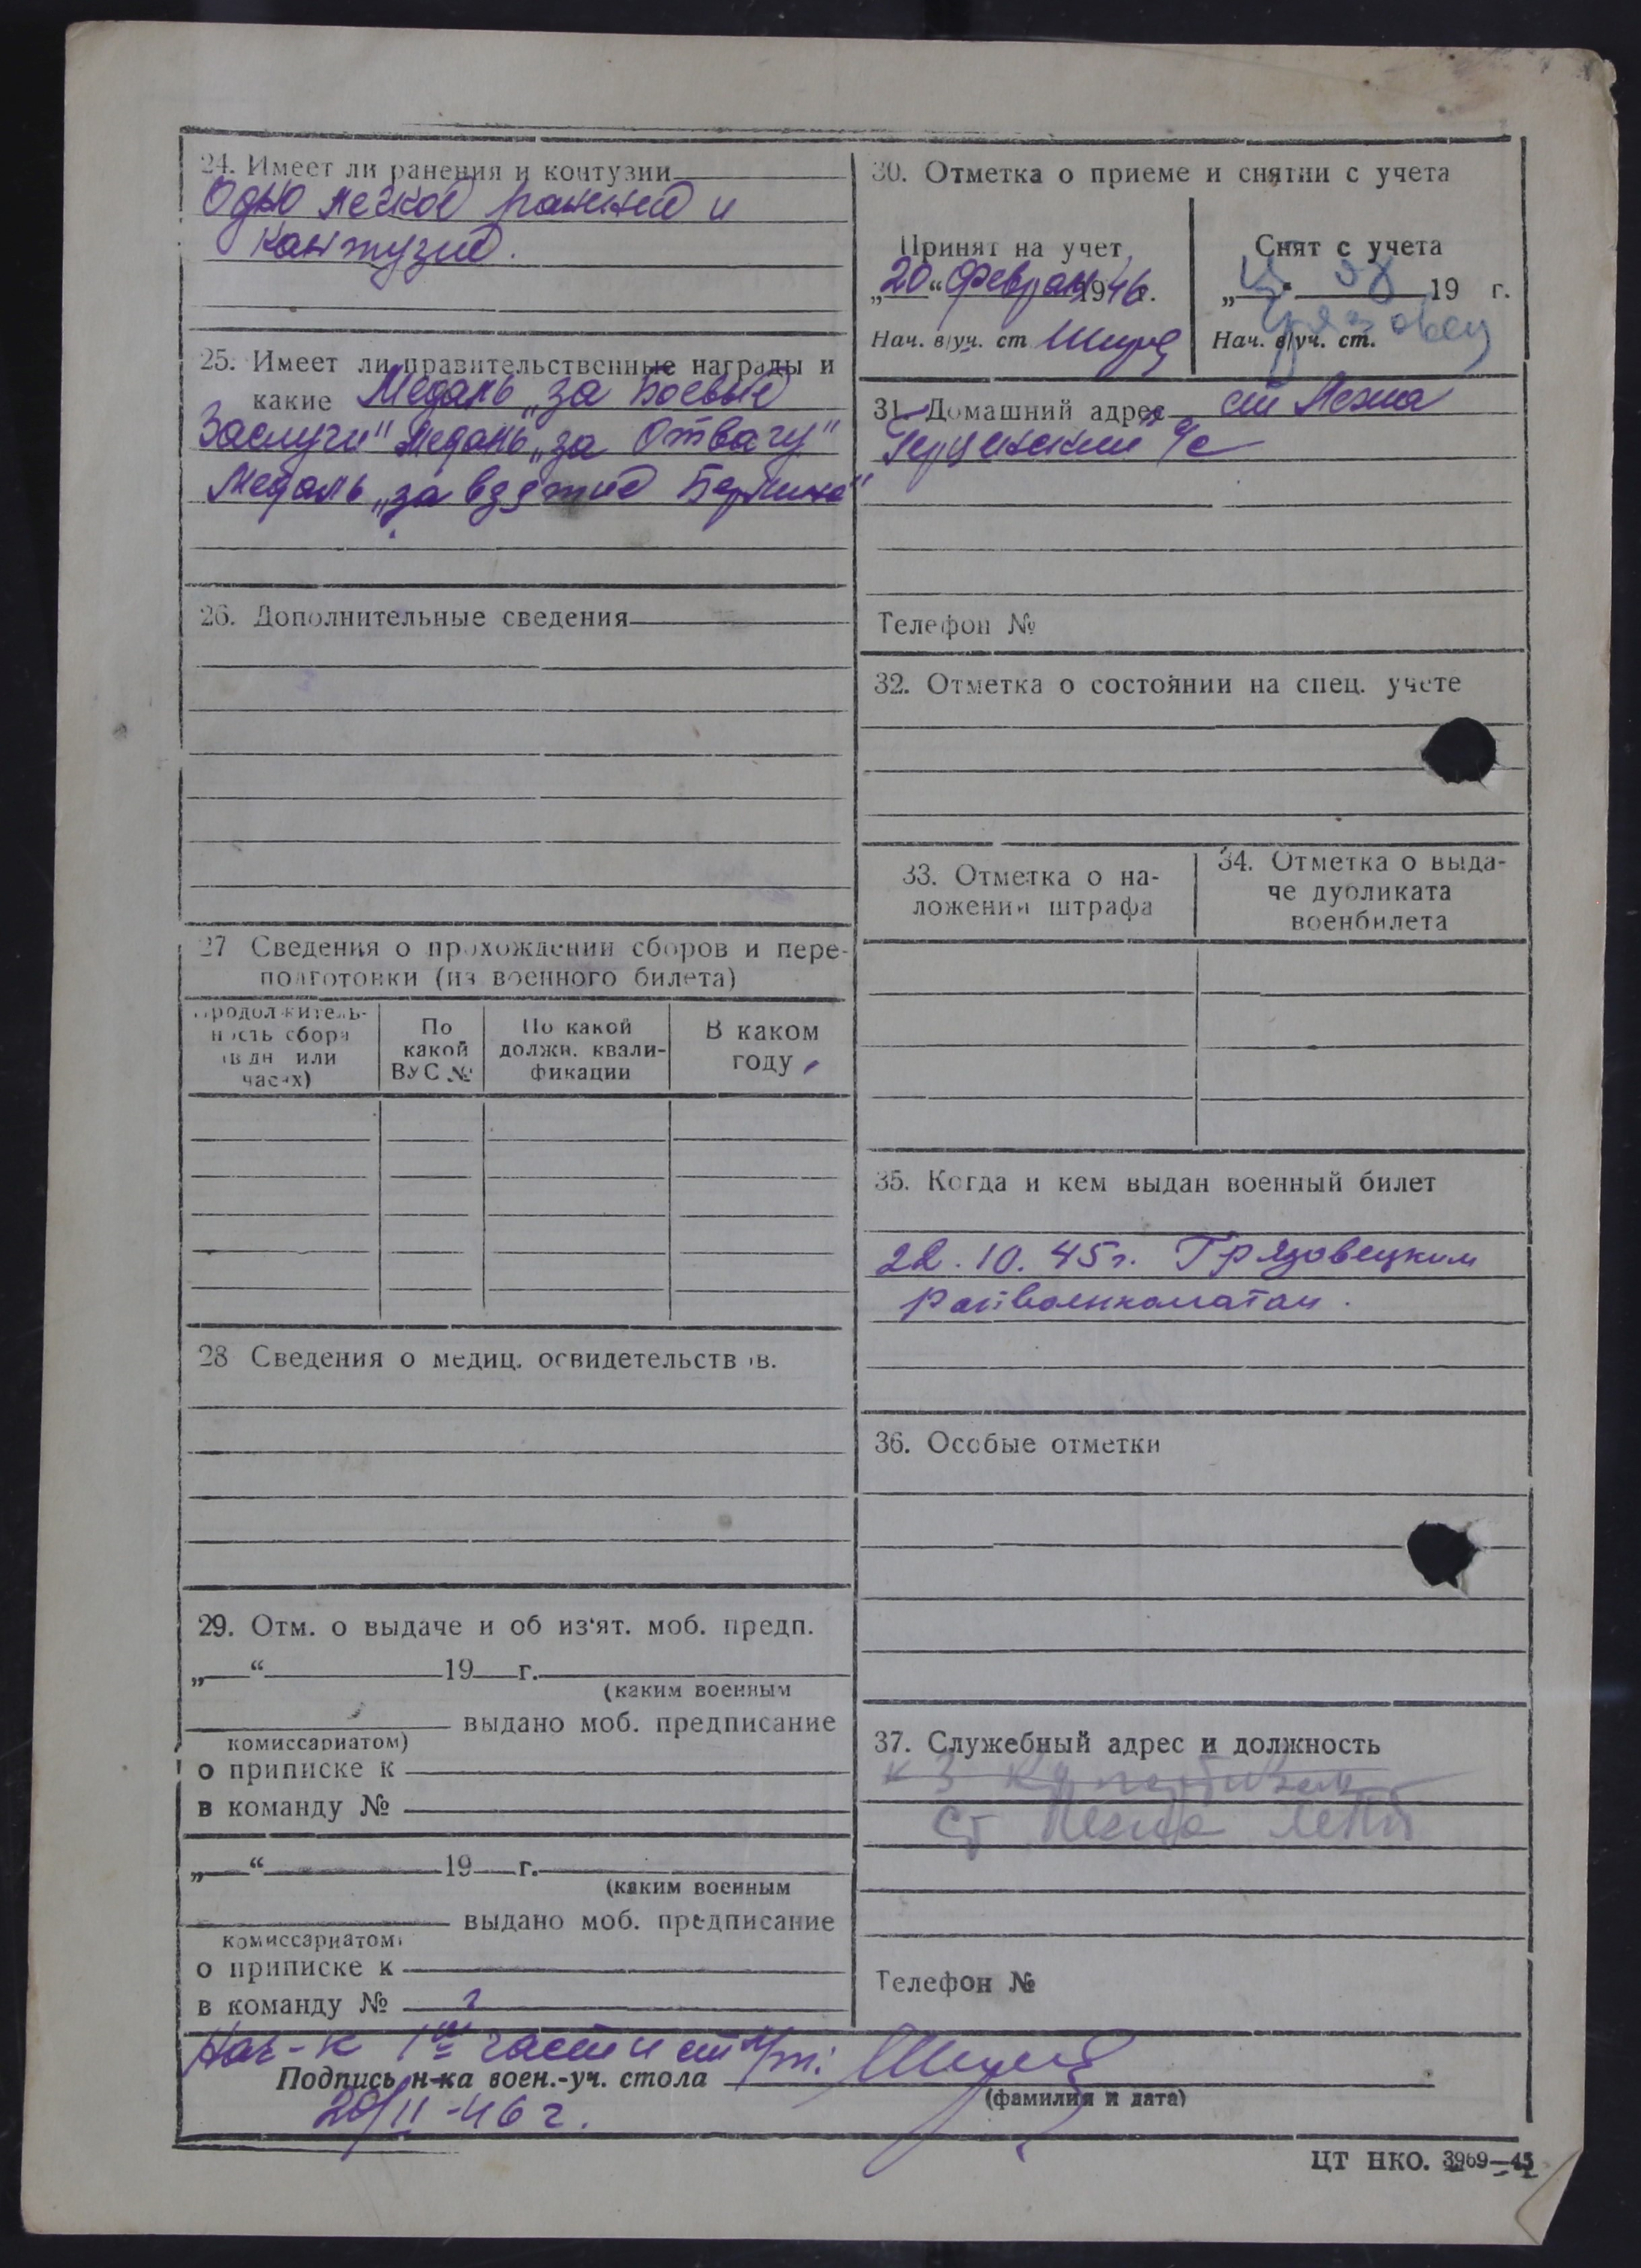 24. Имеет ли ранения и контузии
Одно легкое ранение и
контузие.
25. Имеет ли правительственные награды и
какие Медаль „за Боевые
Заслуги" Медаль „за Отвагу"
Медаль „за взятие Берлина"
26. Дополнительные сведения
27 Сведения о прохождении сборов и пере-
подготовки (из военного билета)
Продолжитель-
ность сбора
(в дн или
часах)
По
какой
ВУС №
По какой
должн. квали-
фикации
В каком
году
28 Сведения о медиц. освидетельств ов.
29. Отм. о выдаче и об из'ят. моб. предп.
„ “ 19 г.
(каким военным
выдано моб. предписание
комиссариатом)
о приписке к
в команду №
„ “ 19 г.
(каким военным
выдано моб. предписание
комиссариатом)
о приписке к
в команду №
30. Отметка о приеме и снятии с учета
Принят на учет
„20“ Феврал 1946 г.
Нач. в/уч. ст
Снят с учета
„ “ 19 г.
Нач. в/уч. ст.
31. Домашний адрес ст Лежа
с/с
Телефон №
32. Отметка о состоянии на спец. учете
33. Отметка о на-
ложении штрафа
34. Отметка о выда-
че дубликата
военбилета
35. Когда и кем выдан военный билет
22.10.45г. Грязовецким
райвоенкоматом.
36. Особые отметки
37. Служебный адрес и должность
ст Лежа
Телефон №
Нач-к 1ой части ст л/т:
Подпись н-ка воен.-уч. стола
(фамилия и дата)
20/II-46г.
ЦТ НКО. 3969—45